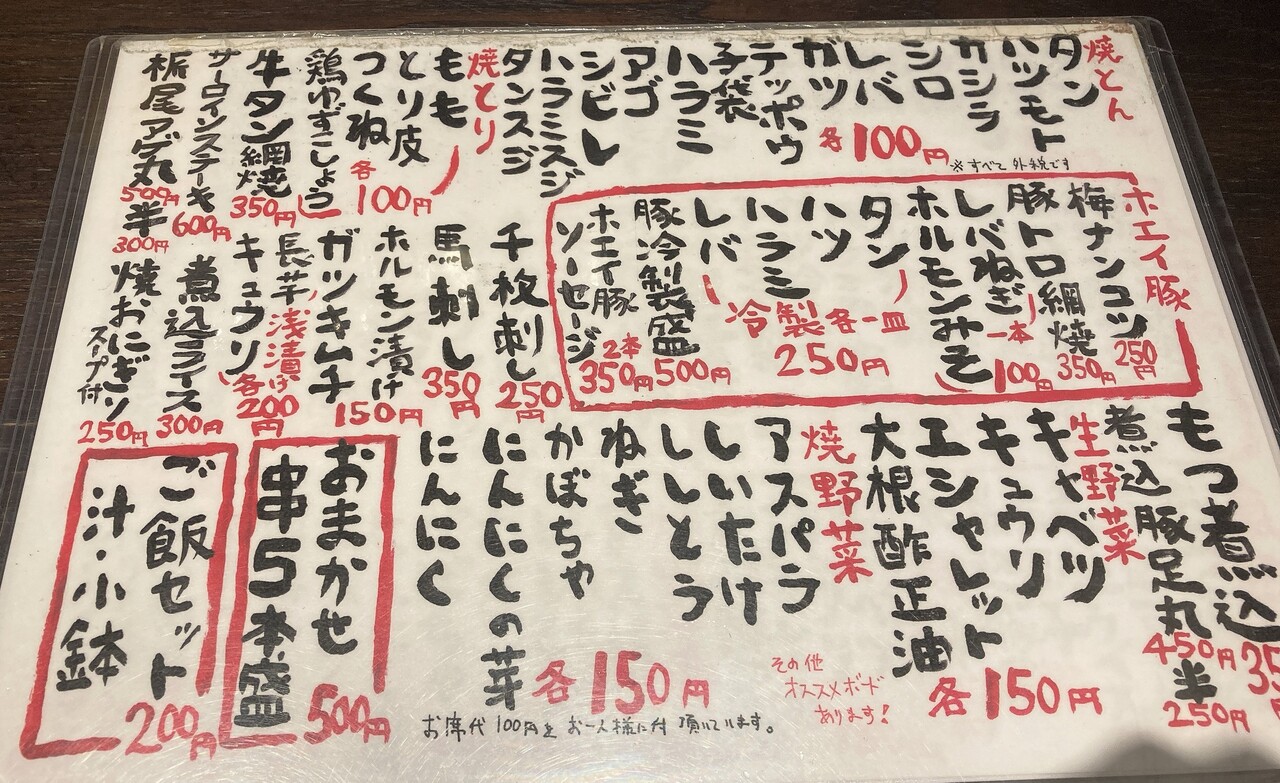 焼とん
タン
ハツモト
カシラ
シロ
レバ
ガツ
テッポウ
子袋
ハラミ
アゴ
シビレ
ハラミスジ
タンスジ
各100円
※すべて外税です
焼とり
もも
とり皮
つくね
各100円
鶏ゆずこしょう
牛タン網焼
350円
サーロインステーキ
600円
栃尾アゲ丸
500円
半
300円
ホエイ豚
梅ナンコツ
250円
豚トロ網焼
350円
レバねぎ
一本
100円
ホルモンみそ
タン
ハツ
ハラミ
レバ
冷製各一皿
250円
豚冷製盛
500円
ホエイ豚
ソーセージ
2本
350円
千枚刺し
250円
馬刺し
350円
ホルモン漬け
150円
ガツキムチ
長芋浅漬け
キュウリ
各200円
煮込ライス
300円
焼おにぎり
スープ付
250円
もつ煮込
35
煮込豚足丸
450円
半
250円
生野菜
キャベツ
キュウリ
エシャレット
大根酢正油
各150円
焼野菜
アスパラ
しいたけ
ししとう
ねぎ
かぼちゃ
にんにくの芽
にんにく
各150円
その他
オススメボード
あります!
お席代100円をお一人様に付頂いています。
おまかせ
串5本盛
500円
ご飯セット
汁・小鉢
200円